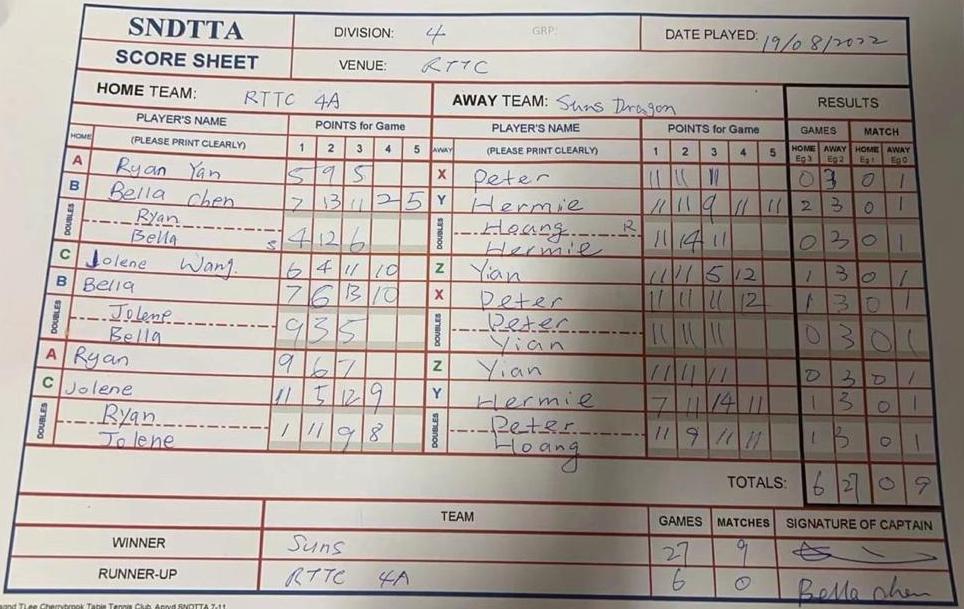 SNDTTA DIVISION: 4 GRP: DATE PLAYED: 19/08/2022
SCORE SHEET VENUE: RTTC
HOME TEAM: RTTC 4A AWAY TEAM: Suns Dragon RESULTS
PLAYER'S NAME POINTS for Game PLAYER'S NAME POINTS for Game GAMES MATCH
HOME (PLEASE PRINT CLEARLY) 1 2 3 4 5 AWAY (PLEASE PRINT CLEARLY) 1 2 3 4 5 HOME Eg 3 AWAY Eg 2 HOME Eg 1 AWAY Eg 0
A Ryan Yan 5 9 5 X Peter 11 11 11 0 3 0 1
B Bella Chen 7 13 11 2 5 Y Hermie 11 11 9 11 11 2 3 0 1
DOUBLES Ryan DOUBLES Hoang R
Bella S 4 12 6 Hermie 11 14 11 0 3 0 1
C Jolene Wang 6 4 11 10 Z Yian 11 11 5 12 1 3 0 1
B Bella 7 6 13 10 X Peter 11 11 11 12 1 3 0 1
DOUBLES Jolene DOUBLES Peter
Bella 9 3 5 Yian 11 11 11 0 3 0 1
A Ryan 9 6 7 Z Yian 11 11 11 0 3 0 1
C Jolene 11 5 12 9 Y Hermie 7 11 14 11 1 3 0 1
DOUBLES Ryan DOUBLES Peter
Jolene 1 11 9 8 Hoang 11 9 11 11 1 3 0 1
TOTALS: 6 27 0 9
TEAM GAMES MATCHES SIGNATURE OF CAPTAIN
WINNER Suns 27 9
RUNNER-UP RTTC 4A 6 0 Bella Chen
TLee Cherrybrook Table Tennis Club. Apprvd SNDTTA 7-11